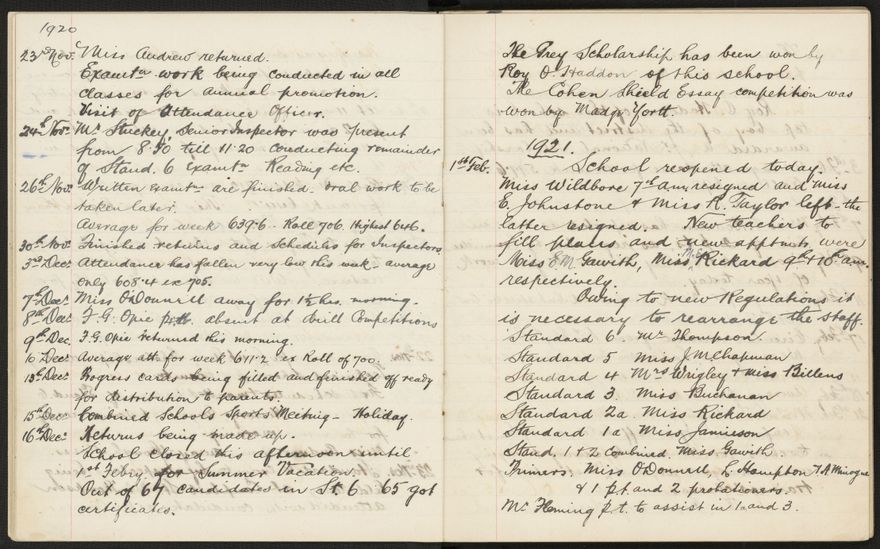 1920
23rd Nov. Miss Andrew returned.
Examtn work being conducted in all
classes for annual promotion.
Visit of Attendance Officer.
24th Nov. Mr Stuckey, Senior Inspector was present
from 8.50 till 11.20 conducting remainder
of Stand. 6 Examtn Reading etc.
26th Nov. Written examtns are finished - oral work to be
taken later.
Average for week 639.6 - Roll 706. Highest 646.
30th Nov. Finished returns and Schedules for Inspectors
3rd Dec. Attendance has fallen very low this week - average
only 608.4 ex 705.
7th Dec. Miss O'Donnell away for 1½ hrs. morning.
8th Dec. F.G. Opie absent at drill Competitions
9th Dec. F.G. Opie returned this morning.
10 Dec. Average att. for week 611.2 ex Roll of 700.
13th Dec. Progress cards being filled and finished off ready
for distribution to parents.
15th Dec. Combined Schools Sports Meeting - Holiday.
16th Dec. Returns being made up.
School closed this afternoon until
1st Febry for Summer Vacation.
Out of 67 candidates in St. 6 65 got
certificates.
The Grey Scholarship has been won by
Roy O. Haddon of this school.
The Cohen Shield Essay competition was
won by Madge Forth.
1921.
1st Feb. School reopened today.
Miss Wildbore 7th Am. resigned and Miss
E. Johnstone & Miss R. Taylor left - the
latter resigned. New teachers to
fill places and new apptmts were
Miss E M Gawith, Miss Rickard 9th & 10th am.
respectively.
Owing to new Regulations it
is necessary to rearrange the staff.
Standard 6. Mr Thompson.
Standard 5 Miss J. M Chapman
Standard 4 Mrs Wrigley & Miss Billens
Standard 3 Miss Buchanan
Standard 2a Miss Rickard
Standard 1a Miss Jamieson
Stand. 1 & 2 combined. Miss Gawith
Primers. Miss O'Donnell, L. Hampton & A Minogue
& 1 p.t. and 2 probationers.
Mr Fleming p.t. to assist in 1a and 3.